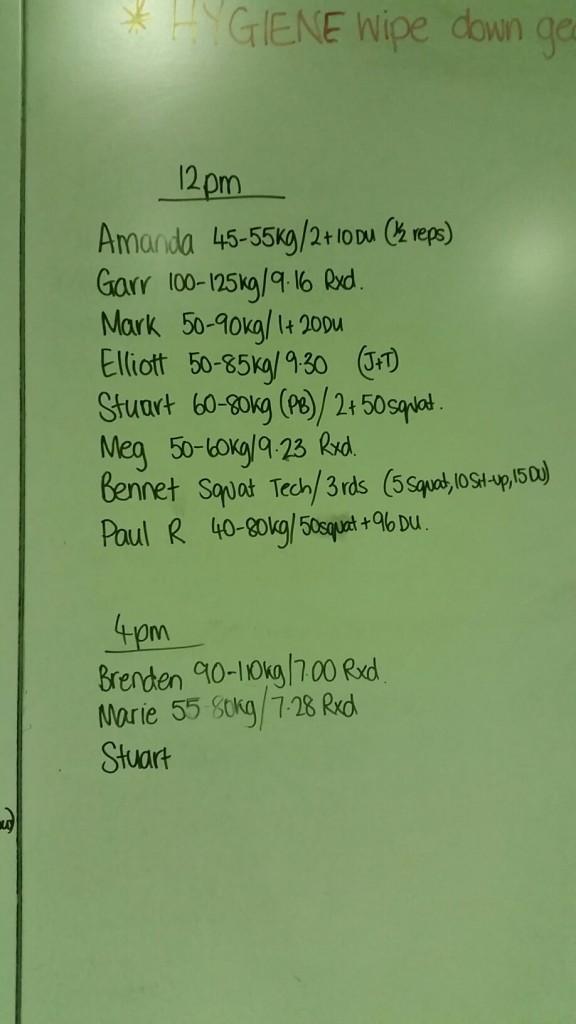 * HYGIENE wipe down
12pm
Amanda 45-55kg/2+10DU (1/2 reps)
Garr 100-125kg/9.16 Rxd.
Mark 50-90kg/1+20DU
Elliott 50-85kg/9.30 (J+T)
Stuart 60-80kg (PB)/2+50squat.
Meg 50-60kg/9.23 Rxd.
Bennet Squat Tech/3rds (5Squat,10Sit-up,15DU)
Paul R 40-80kg/50squat+96DU.
4pm
Brenden 90-110kg/7.00 Rxd.
Marie 55-80kg/7.28 Rxd
Stuart